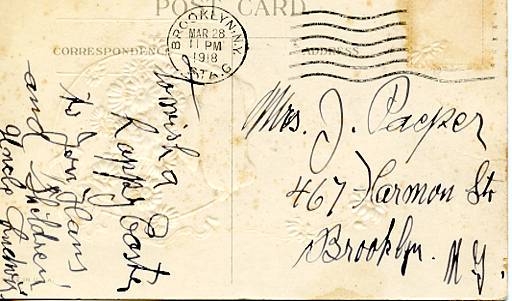 POST CARD
CORRESPONDENCE
ADDRESS
BROOKLYN, N.Y.
MAR 28
11 PM
1918
STA. G
I wish a
happy Easter
to you Hans
and Children
Uncle Ludwig
Mrs. J. Paeper
467 Harmon St
Brooklyn. N. Y.